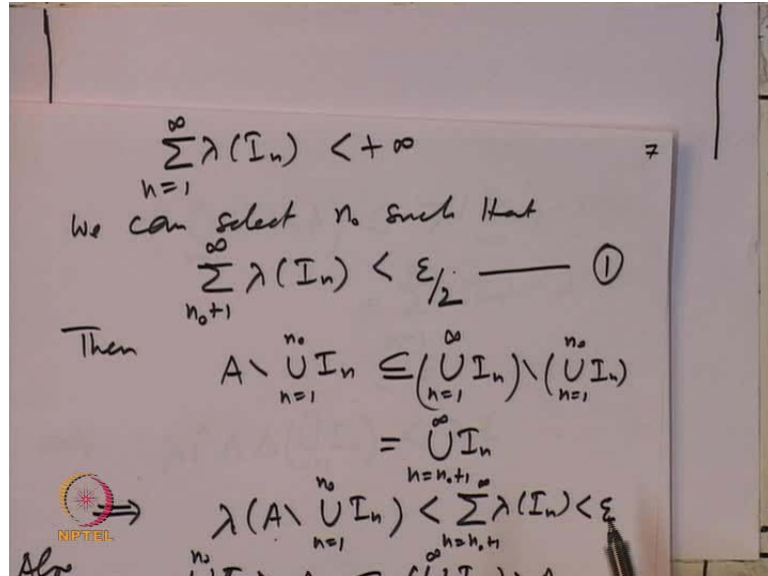 ∞
Σ λ(Iₙ) < +∞
n=1
7
We can select n₀ such that
∞
Σ λ(Iₙ) < ε/2 —— ①
n₀+1
Then
A \ ⋃_{n=1}^{n₀} Iₙ ⊆ (⋃_{n=1}^{∞} Iₙ) \ (⋃_{n=1}^{n₀} Iₙ)
= ⋃_{n=n₀+1}^{∞} Iₙ
⇒ λ(A \ ⋃_{n=1}^{n₀} Iₙ) < Σ_{n=n₀+1}^{∞} λ(Iₙ) < ε
NPTEL
Also